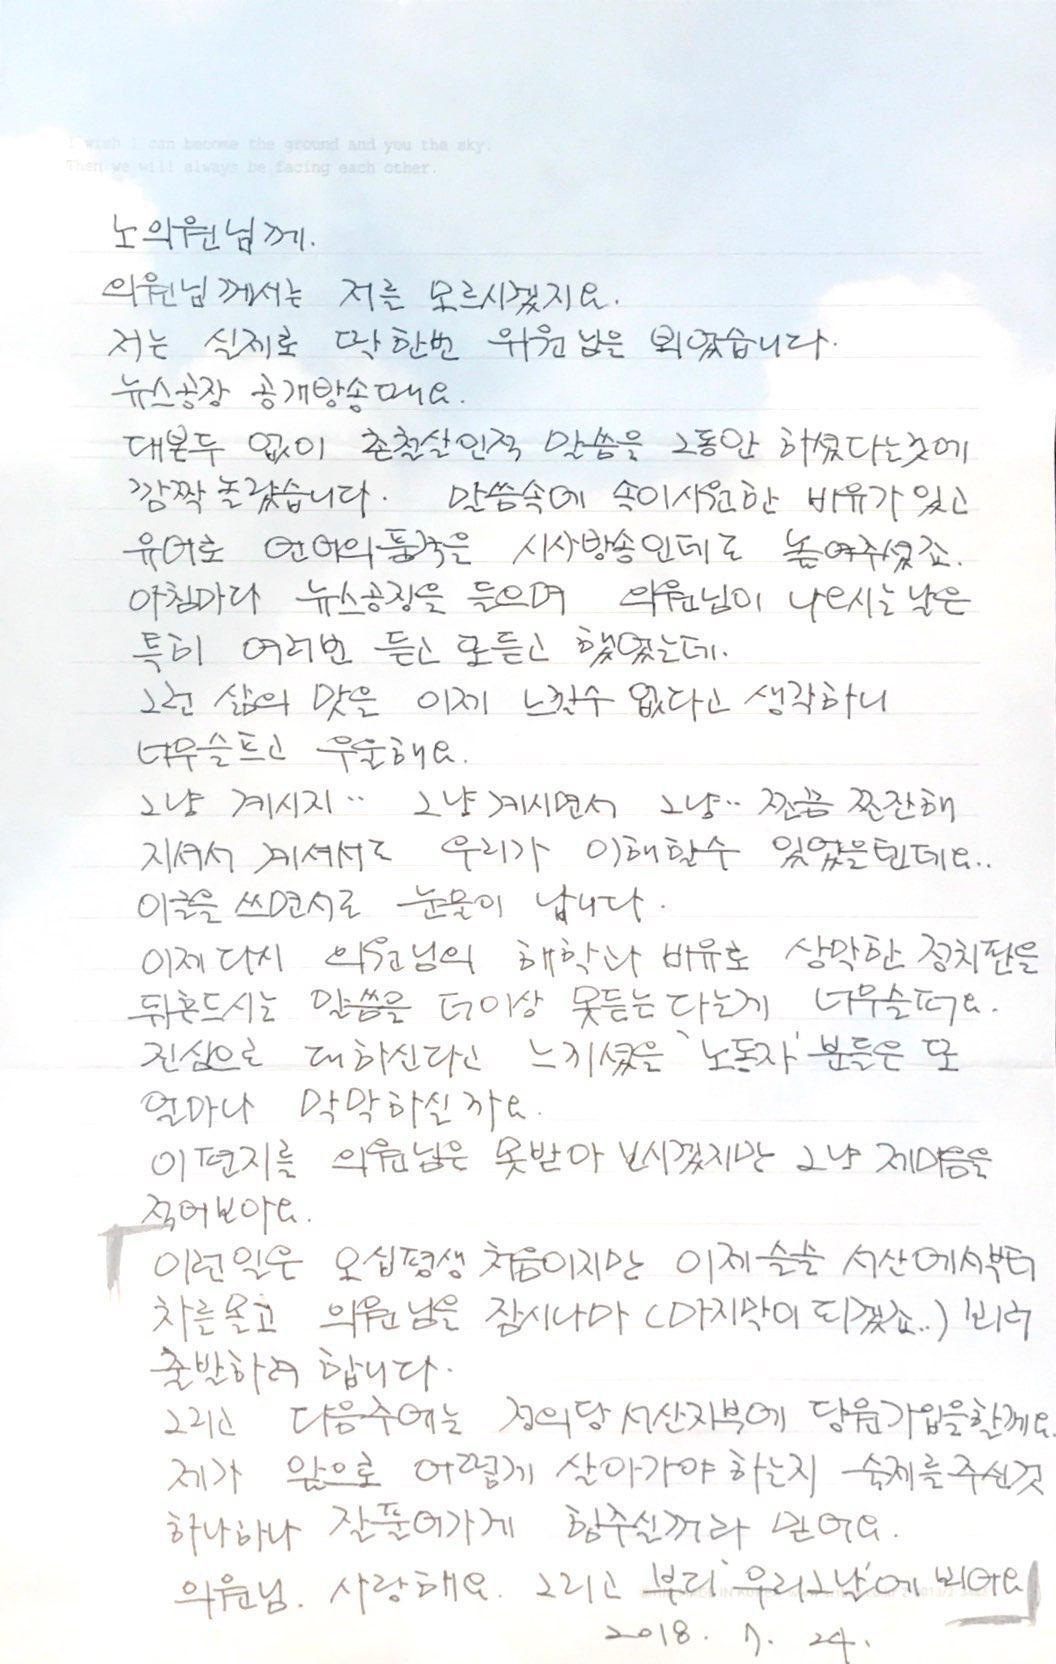 I wish I can become the ground and you the sky.
Then we will always be facing each other.
노의원님께.
의원님께서는 저를 모르시겠지요.
저는 실제로 딱한번 위원님을 뵈었습니다.
뉴스공장 공개방송때요.
대본두 없이 촌철살인적 말씀을 그동안 하셨다는것에
깜짝 놀랐습니다. 말씀속에 속이시원한 비유가 있고
유머로 언어의품격을 시사방송인데도 높여주셨죠.
아침마다 뉴스공장을 들으며 의원님이 나오시는날은
특히 여러번 듣고 또듣고 했었는데.
그런 삶의 맛을 이제 느낄수 없다고 생각하니
너무슬프고 우울해요.
그냥 계시지.. 그냥계시면서 그냥.. 쪼끔 짠잔해
지셔서 계셔서도 우리가 이해할수 있었을텐데요..
이글을 쓰면서도 눈물이 납니다.
이제다시 의원님의 해학과 비유로 상막한 정치판을
뒤흔드시는 말씀을 더이상 못듣는다는게 너무슬퍼요.
진심으로 대하신다고 느끼셨을 '노동자' 분들은 또
얼마나 막막하실까요.
이편지를 의원님은 못받아 보시겠지만 그냥 제마음을
적어보아요.
이런일은 오십평생 처음이지만 이제슬슬 서산에서부터
차를몰고 의원님을 잠시나마 (마지막이 되겠죠..) 뵈러
출발하려 합니다.
그리고 다음주에는 정의당 서산지부에 당원가입을할께요.
제가 앞으로 어떻게 살아가야 하는지 숙제를주신것
하나하나 잘풀어가게 힘주실꺼라 믿어요.
의원님. 사랑해요. 그리고 부디 '우리그날'에 뵈어요
2018. 7. 24.